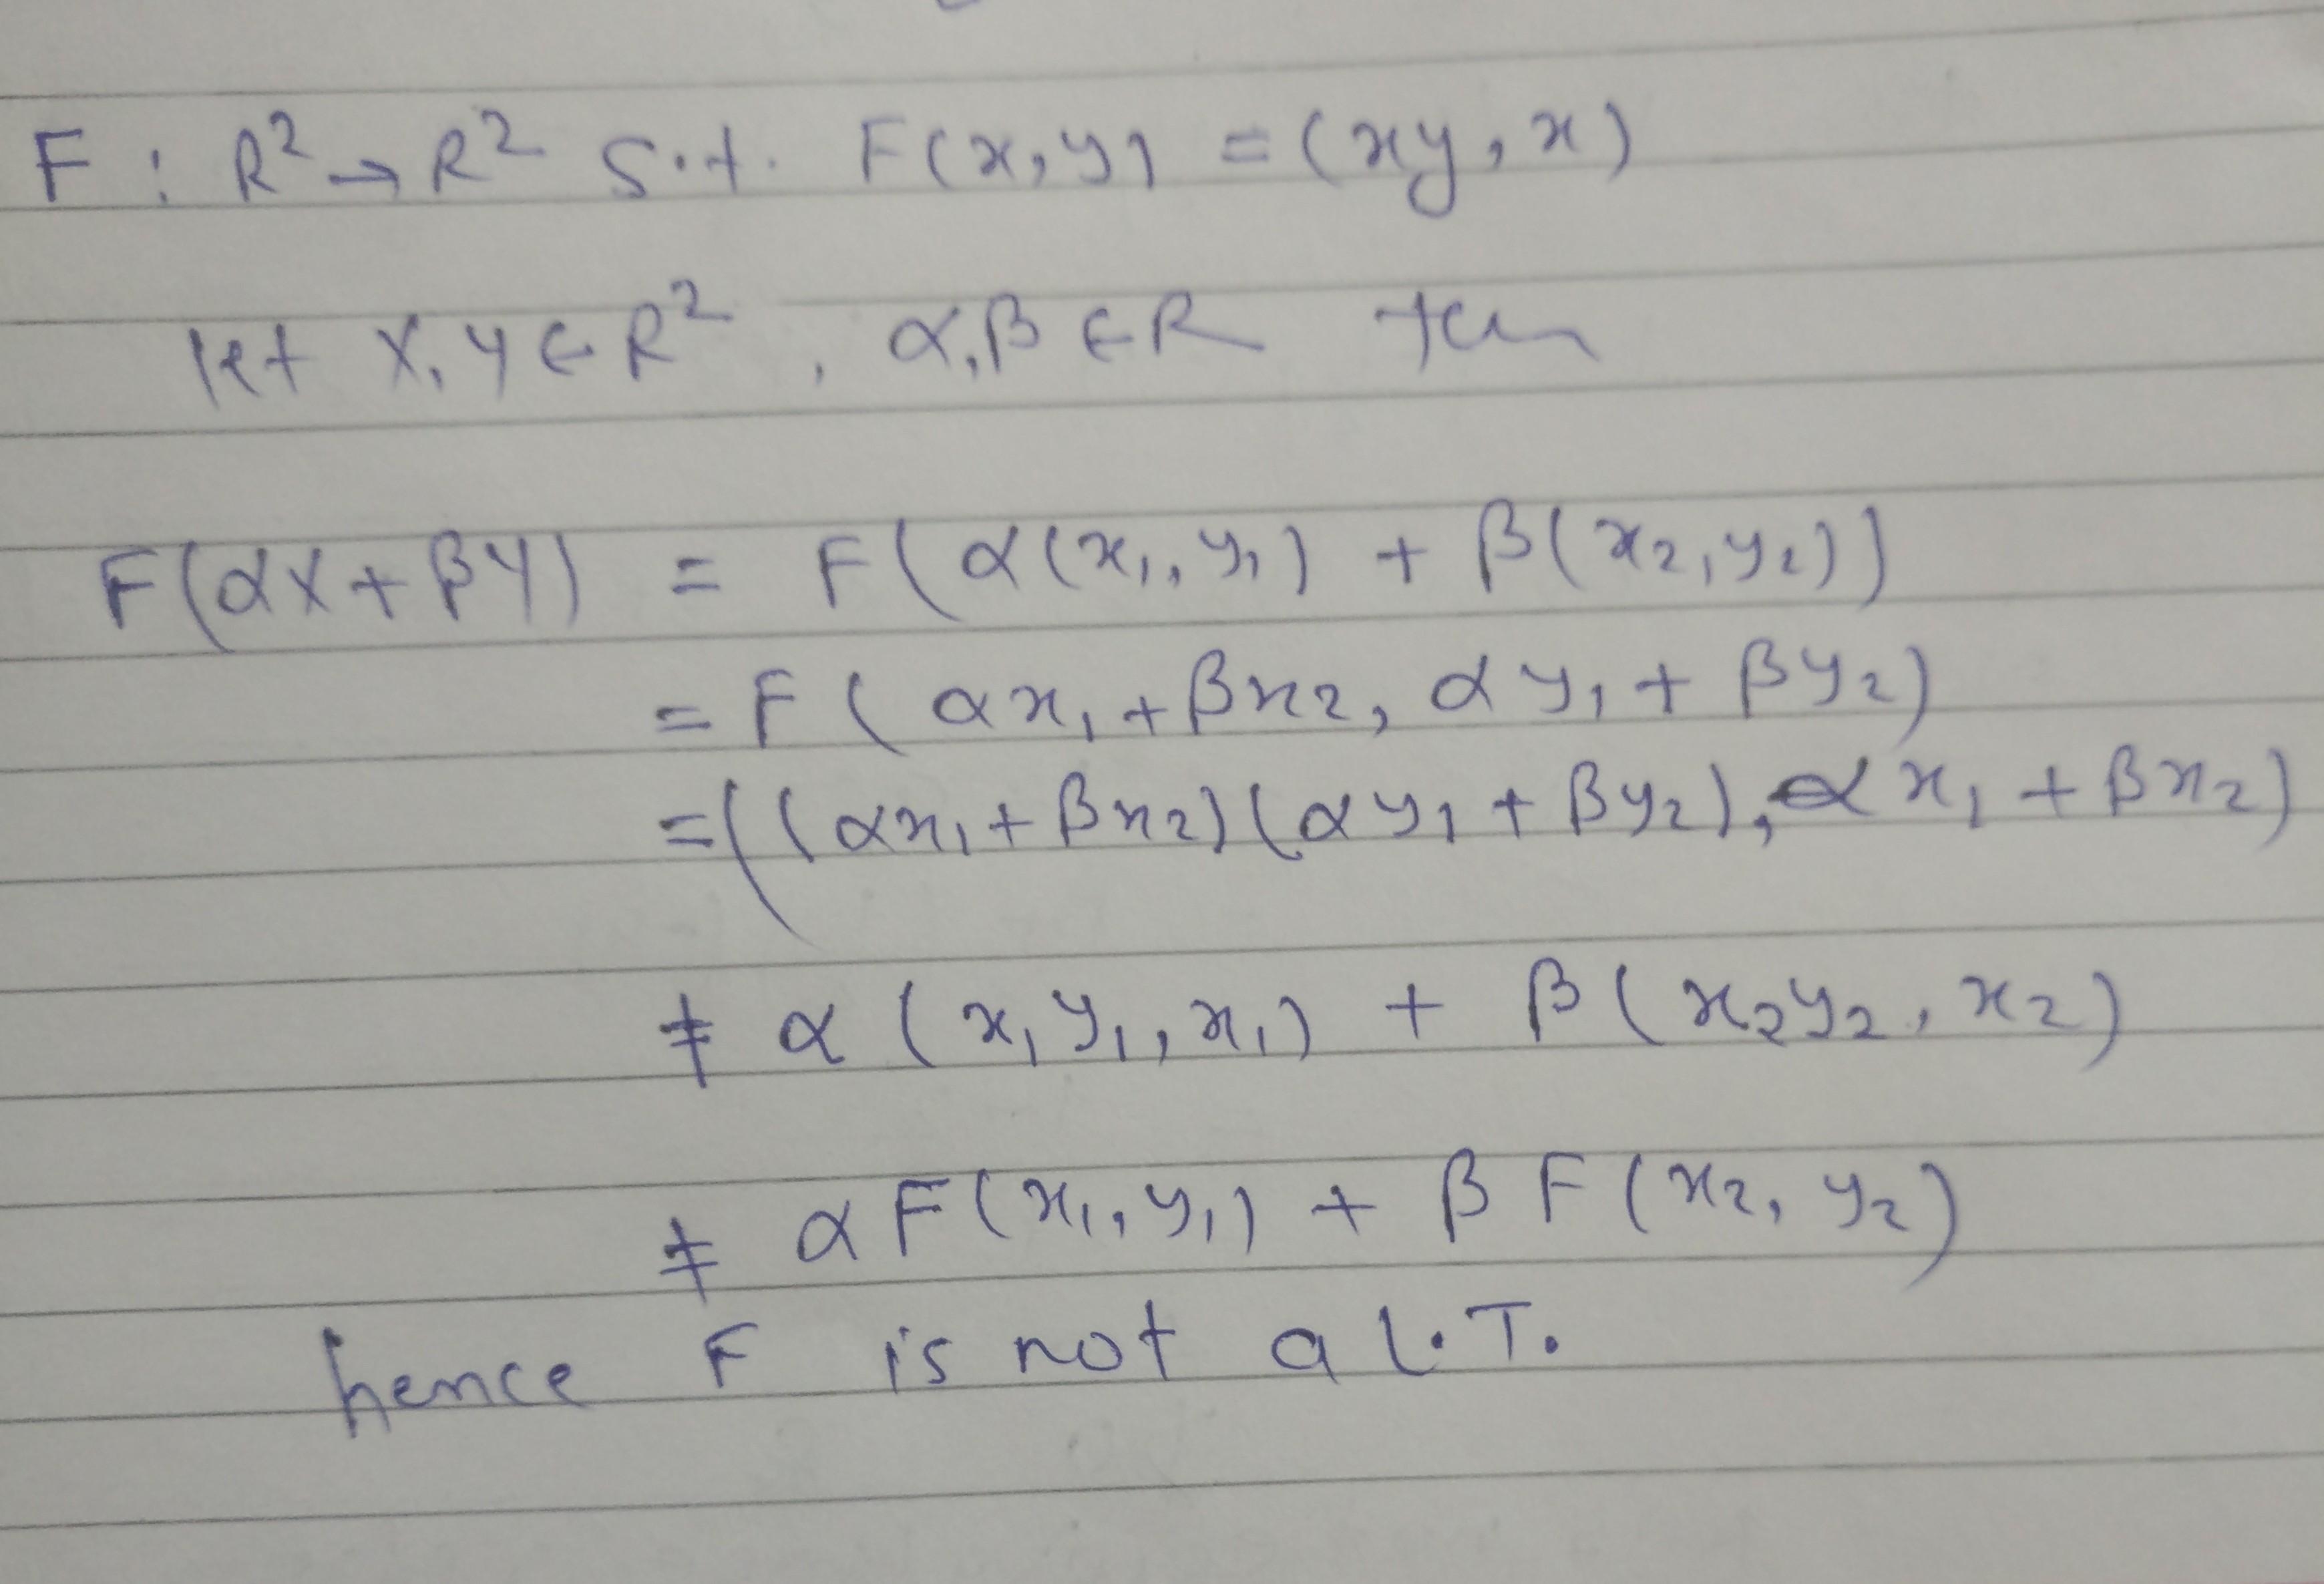 F : R² → R² s.t. F(x, y) = (xy, x)
let X, Y ∈ R², α, β ∈ R then
F(αX + βY) = F(α(x₁, y₁) + β(x₂, y₂))
= F(αx₁ + βx₂, αy₁ + βy₂)
= ((αx₁ + βx₂)(αy₁ + βy₂), αx₁ + βx₂)
≠ α(x₁y₁, x₁) + β(x₂y₂, x₂)
≠ αF(x₁, y₁) + βF(x₂, y₂)
hence F is not a L.T.